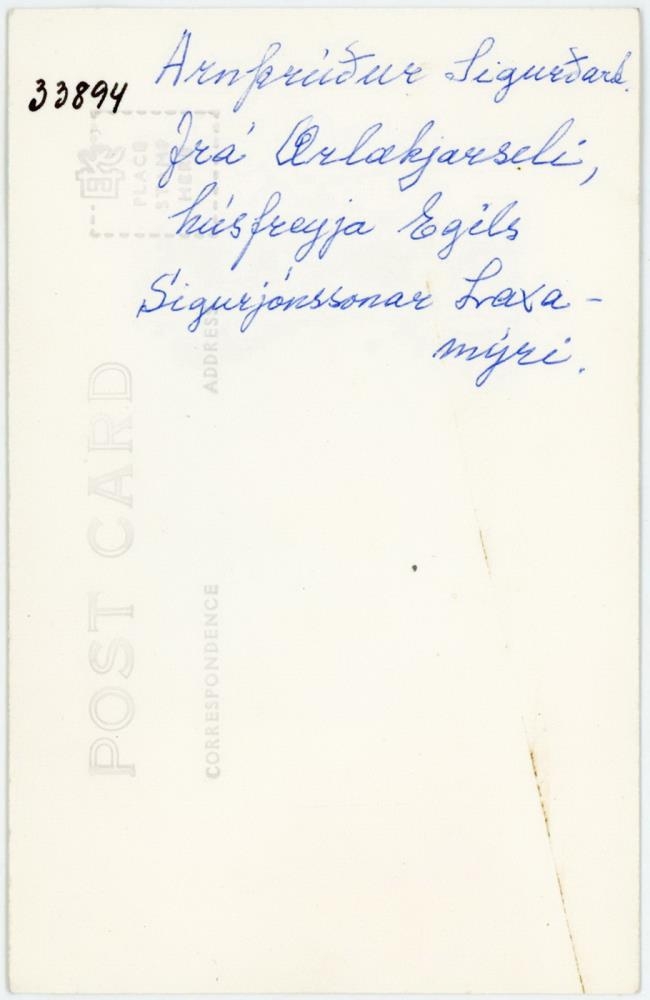 33894
Arnþrúður Sigurðard.
frá Ærlækjarseli,
húsfreyja Egils
Sigurjónssonar Laxa-
mýri.
PLACE
STAMP
HERE
ADDRESS
POST CARD
CORRESPONDENCE